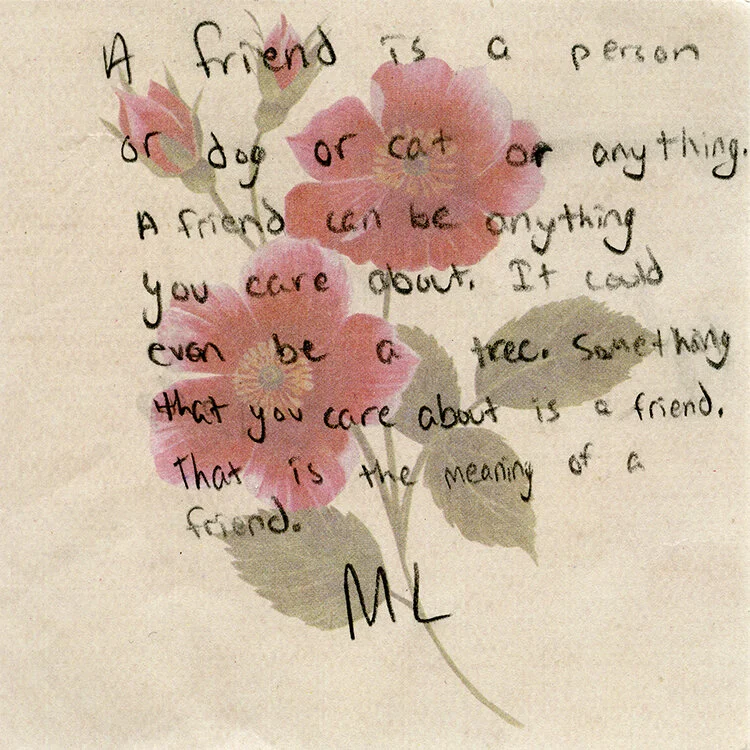 A friend is a person
or dog or cat or anything.
A friend can be anything
you care about. It could
even be a tree. Something
that you care about is a friend.
That is the meaning of a
friend.
ML